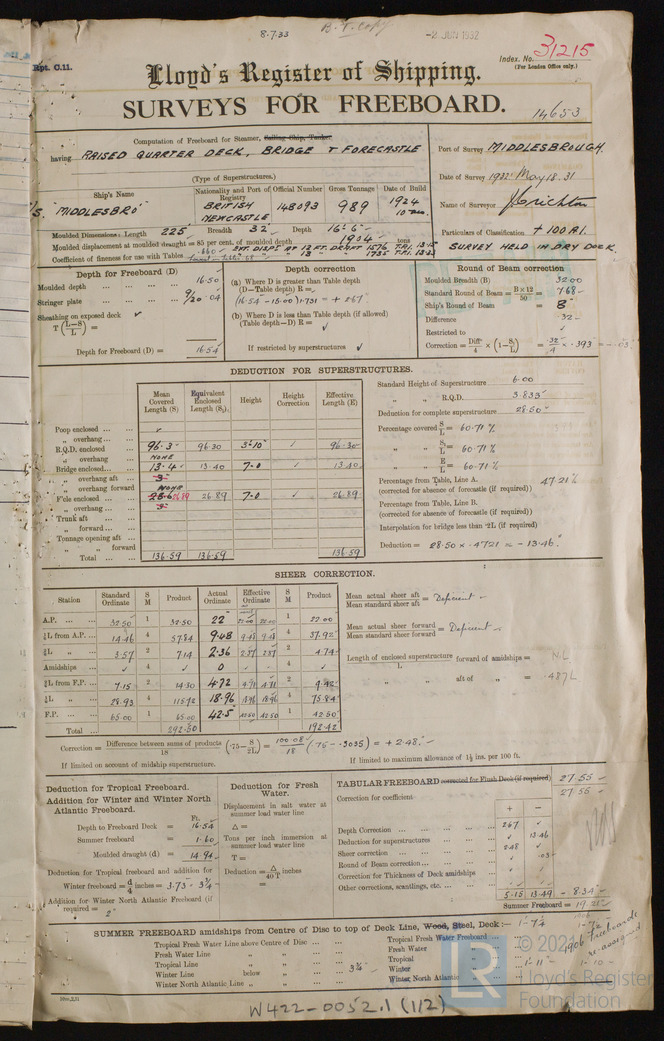 8.7.33
B.T. Copy
-2 JUN 1932
Index. No. 31215
(For London Office only.)
Rpt. C.11.
Lloyd's Register of Shipping.
SURVEYS FOR FREEBOARD.
14653
Computation of Freeboard for Steamer, Sailing Ship, Tanker,
having RAISED QUARTER DECK, BRIDGE & FORECASTLE
(Type of Superstructures.)
Port of Survey MIDDLESBROUGH.
Date of Survey 1932 May 18.31
Name of Surveyor J Crichton
Particulars of Classification + 100 A1.
SURVEY HELD IN DRY DOCK.
Ship's Name
Nationality and Port of Registry
Official Number
Gross Tonnage
Date of Build
S. "MIDDLESBRO'
BRITISH
NEWCASTLE
148093
989
1924
10 mo.
Moulded Dimensions: Length 225' Breadth 32' Depth 16'6"
Moulded displacement at moulded draught = 85 per cent. of moulded depth 1904 tons
Coefficient of fineness for use with Tables .660
EXT. DISPT AT 12 FT. DRAFT 1576 T.P.I. 13.15
" " 13 " 1735 T.P.I. 13.23
Depth for Freeboard (D)
Moulded depth 16.50
Stringer plate 9/20 .04
Sheathing on exposed deck ✓
T (L–S/L) =
Depth for Freeboard (D) = 16.54
Depth correction
(a) Where D is greater than Table depth
(D–Table depth) R =
(16.54 - 15.00) 1.731 = + 2.67
(b) Where D is less than Table depth (if allowed)
(Table depth—D) R = ✓
If restricted by superstructures ✓
Round of Beam correction
Moulded Breadth (B) 32.00
Standard Round of Beam = B×12/50 = 7.68
Ship's Round of Beam = 8"
Difference .32
Restricted to ✓
Correction = Diff/4 × (1–S/L) = .32/4 × .393 = -.03
DEDUCTION FOR SUPERSTRUCTURES.
Mean Covered Length (S)
Equivalent Enclosed Length (S₁),
Height
Height Correction
Effective Length (E)
Poop enclosed ✓
„ overhang
R.Q.D. enclosed 96.3 96.30 3'-10" ✓ 96.30
„ overhang NONE
Bridge enclosed 13.4 13.40 7-0 ✓ 13.40
„ overhang aft
„ overhang forward NONE
F'cle enclosed 28.6 26.89 26.89 7-0 ✓ 26.89
„ overhang
Trunk aft
„ forward
Tonnage opening aft
„ „ forward
Total 136.59 136.59 136.59
Standard Height of Superstructure 6.00
„ „ R.Q.D. 3.833
Deduction for complete superstructure 28.50"
Percentage covered S/L = 60.71 %
„ „ S₁/L = 60.71 %
„ „ E/L = 60.71 %
Percentage from Table, Line A.
(corrected for absence of forecastle (if required)) 47.21%
Percentage from Table, Line B.
(corrected for absence of forecastle (if required))
Interpolation for bridge less than ·2L (if required)
Deduction = 28.50 × .4721 = - 13.46"
SHEER CORRECTION.
Station
Standard Ordinate
S M
Product
Actual Ordinate
Effective Ordinate
S M
Product
A.P. 32.50 1 32.50 22" 22.00 22.00 1 22.00
⅙L from A.P. 14.46 4 57.84 9.48 9.48 9.48 4 37.92
⅓L „ 3.57 2 7.14 2.36 2.37 2.37 2 4.74
Amidships ✓ 4 ✓ 0 - - 4 ✓
⅓L from F.P. 7.15 2 14.30 4.72 4.71 4.71 2 9.42
⅙L „ 28.93 4 115.72 18.96 18.96 18.96 4 75.84
F.P. 65.00 1 65.00 42.5" 42.50 42.50 1 42.50
Total 292.50 192.42
Mean actual sheer aft / Mean standard sheer aft = Deficient
Mean actual sheer forward / Mean standard sheer forward = Deficient
Length of enclosed superstructure / L forward of amidships = NIL
„ „ aft of „ = .487L
Correction = Difference between sums of products/18 (·75 – S/2L) = 100.08/18 (.75 - .3035) = + 2.48"
If limited on account of midship superstructure.
If limited to maximum allowance of 1½ ins. per 100 ft.
Deduction for Tropical Freeboard.
Addition for Winter and Winter North Atlantic Freeboard.
Ft.
Depth to Freeboard Deck = 16.54
Summer freeboard = 1.60
Moulded draught (d) = 14.94
Deduction for Tropical freeboard and addition for
Winter freeboard = d/4 inches = 3.73 - 3¾
Addition for Winter North Atlantic Freeboard (if required) = 2"
Deduction for Fresh Water.
Displacement in salt water at summer load water line
Δ =
Tons per inch immersion at summer load water line
T =
Deduction = Δ/40T inches
=
TABULAR FREEBOARD corrected for Flush Deck (if required) 27.55
Correction for coefficient 27.55
+ –
Depth Correction 2.67
Deduction for superstructures ✓ 13.46
Sheer correction 2.48 ✓
Round of Beam correction ✓ .03
Correction for Thickness of Deck amidships
Other corrections, scantlings, etc.
5.15 13.49 - 8.34
Summer Freeboard = 19.21
SUMMER FREEBOARD amidships from Centre of Disc to top of Deck Line, Wood, Steel, Deck:— 1'-7¼
Tropical Fresh Water Line above Centre of Disc
Fresh Water Line „ „
Tropical Line „ „
Winter Line below „ 3¾
Winter North Atlantic Line „ „
Tropical Fresh Water Freeboard
Fresh Water „
Tropical „
Winter „ 1-11
Winter North Atlantic „
1906 freeboards re-assigned
1-10
© 202
LR
Lloyd's Register
Foundation
W422-0052.1 (1/2)